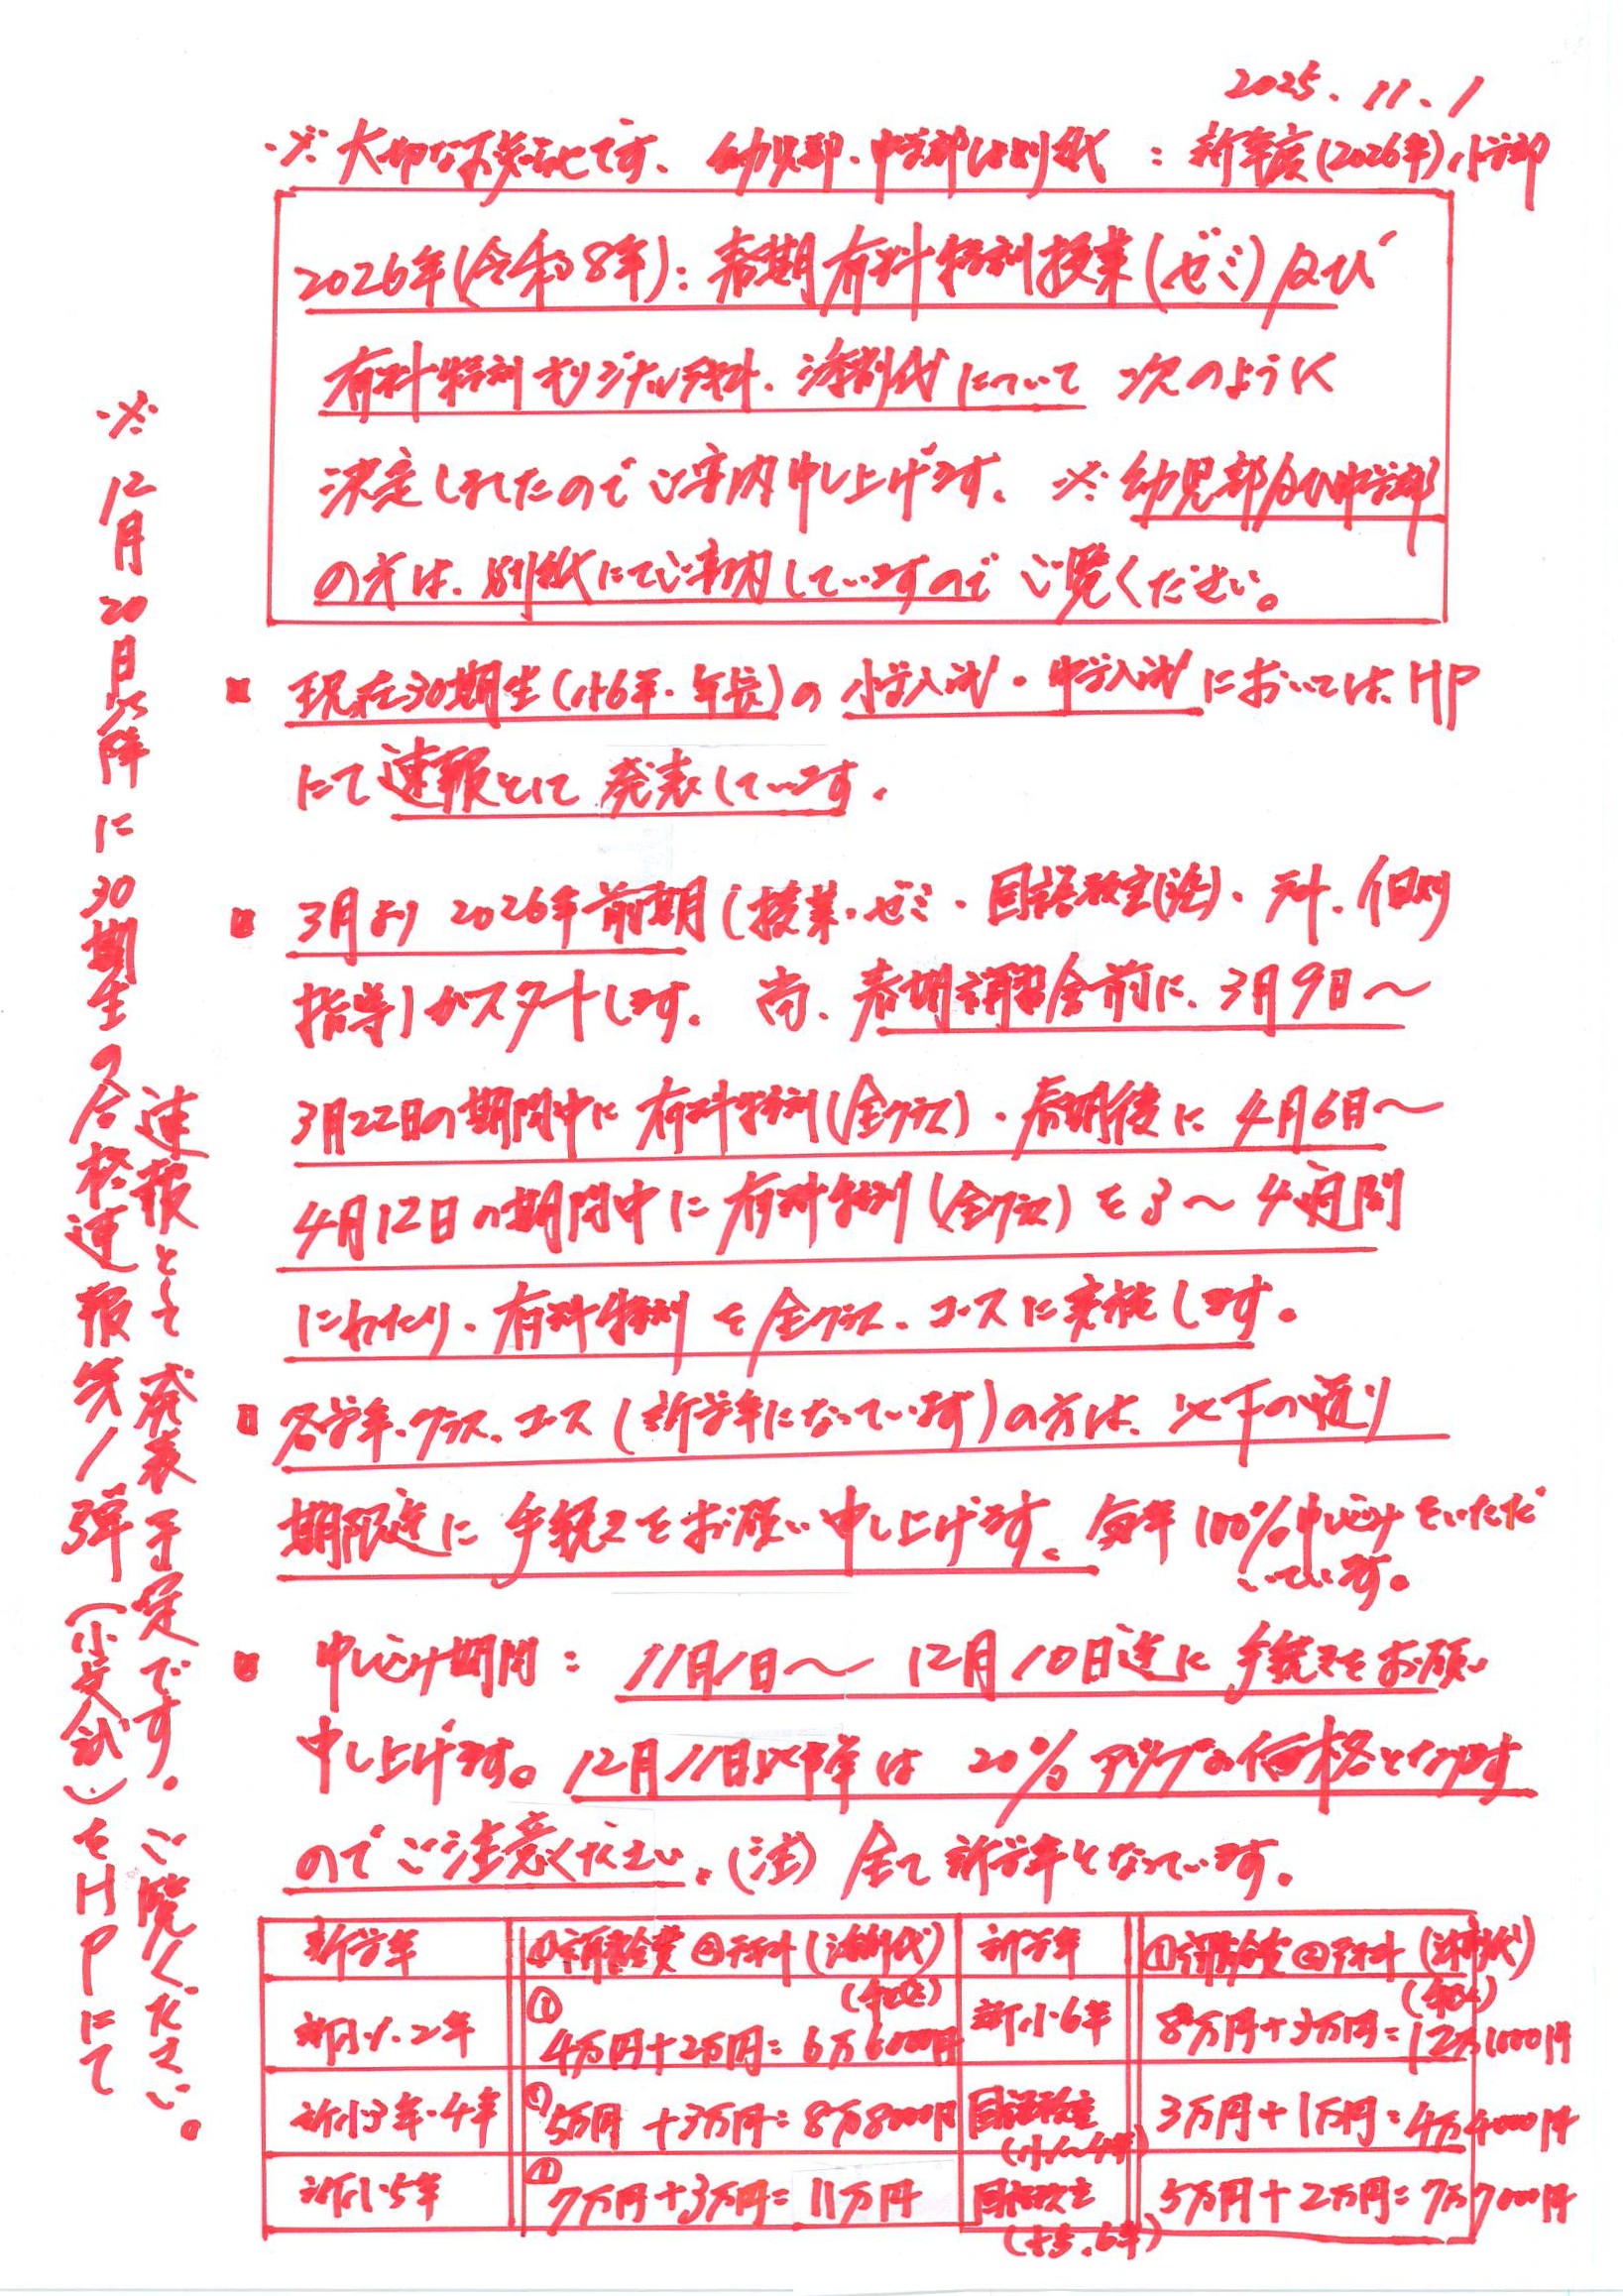 2025.11.1
※大切なお知らせです。幼児部・中学部は別紙：新年度(2026年)小学部
2026年(令和8年)：春期有料特訓授業(ゼミ)及び
有料特訓オリジナル予料、添削代について 次のように
決定しましたのでご案内申し上げます。※幼児部及び中学部
の方は、別紙にてご案内していますので ご覧ください。
■ 現在30期生(小6年・年長)の小学入試・中学入試においては、HP
にて速報として発表しています。
■ 3月より 2026年前期(授業・ゼミ・国語教室(注)・予料、個別
指導)がスタートします。尚、春期講習会前に、3月9日〜
3月22日の期間中に有料特訓(全クラス)・春期後に 4月6日〜
4月12日の期間中に有料特訓(全クラス)を3〜4週間
にわたり、有料特訓を全クラス、コースに実施します。
■ 各学年・クラス、コース(新学年になっています)の方は、以下の通り
期限迄に手続きをお願い申し上げます。毎年100%申し込みをいただ
いています。
■ 申し込み期間：11月1日〜12月10日迄に手続きをお願い
申し上げます。12月11日以降は 20%アップの価格となります
のでご注意ください。(注)全て新学年となっています。
新学年 ①講習会費 ②予料(添削代) 新学年 ①講習会費 ②予料(添削代)
新小1.2年 ① 4万円+2万円=6万6000円 (税込) 新小6年 8万円+3万円=12万1000円 (税込)
新小3年・4年 ① 5万円+3万円=8万8000円 国語教室(小1〜4年) 3万円+1万円=4万4000円
新小5年 ① 7万円+3万円=11万円 国語教室(小5.6年) 5万円+2万円=7万7000円
※12月20日以降に30期生の合格速報第1弾(小学入試)をHPにて
速報として発表予定です。ご覧ください。